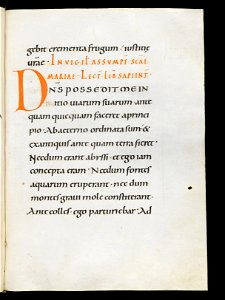 gebit crementa frugum iustitię
urae · IN VIGIL ASSUMPT SCAE
MARIAE · LECT LIB SAPIENT
DNS POSSEDIT ME IN
initio uiarum suarum ante
quam quicquam faceret a princi
pio · Ab aeterno ordinata sum &
ex antiquis ante quam terra fieret ·
Necdum erant abyssi · et ego iam
concepta eram · Necdum fontes
aquarum eruperant · nec dum
montes graui mole constiterant ·
Ante colles · ego parturiebar · Ad